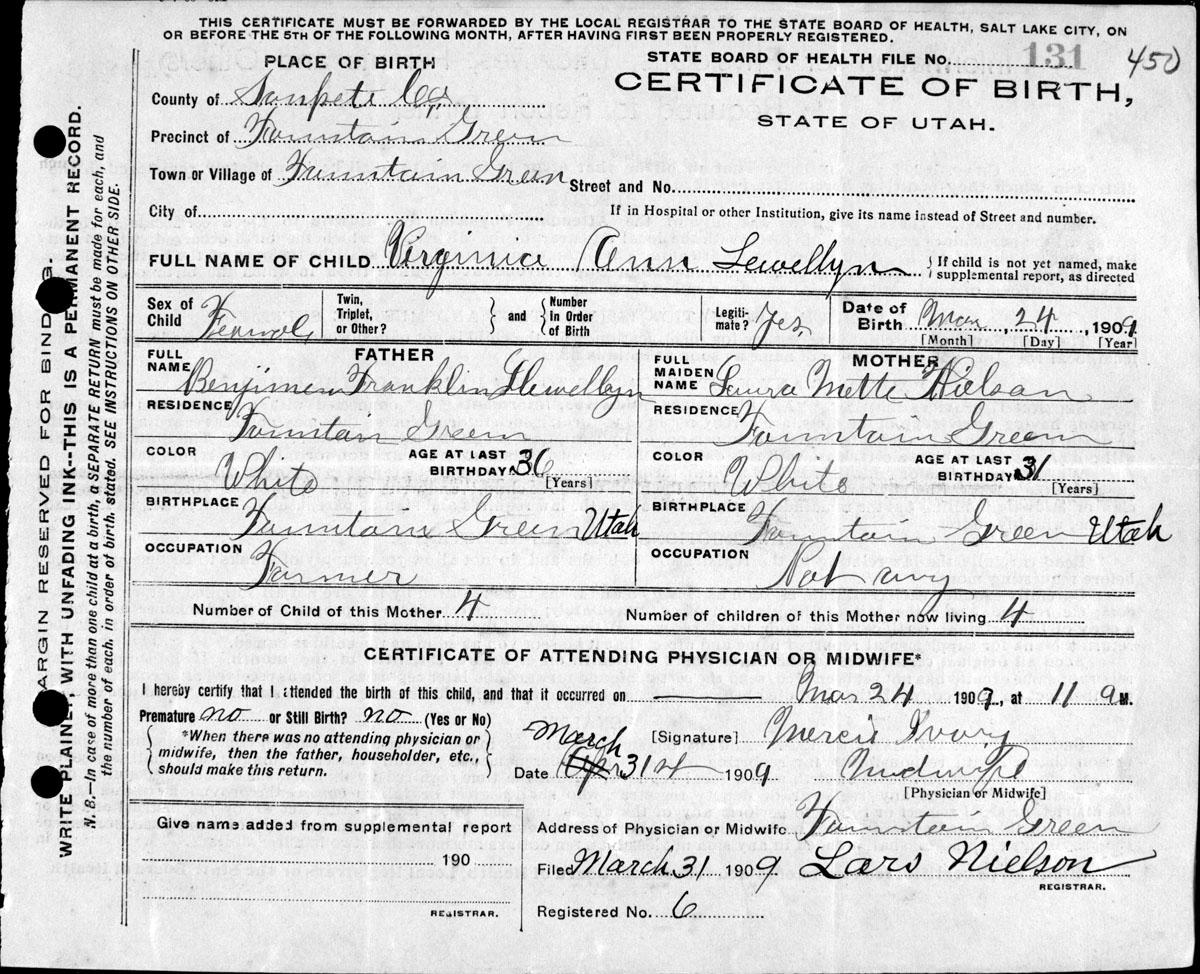 THIS CERTIFICATE MUST BE FORWARDED BY THE LOCAL REGISTRAR TO THE STATE BOARD OF HEALTH, SALT LAKE CITY, ON
OR BEFORE THE 5TH OF THE FOLLOWING MONTH, AFTER HAVING FIRST BEEN PROPERLY REGISTERED.
PLACE OF BIRTH
STATE BOARD OF HEALTH FILE No. 131 450
County of Sanpete Co.
CERTIFICATE OF BIRTH,
Precinct of Fountain Green
STATE OF UTAH.
Town or Village of Fountain Green Street and No.
City of If in Hospital or other Institution, give its name instead of Street and number.
FULL NAME OF CHILD Virginia Ann Lewellyn { If child is not yet named, make
supplemental report, as directed
Sex of Child Female Twin, Triplet, or Other? } and { Number In Order of Birth Legiti-mate? Yes Date of Birth Mar 24, 1909
[Month] [Day] [Year]
FATHER MOTHER
FULL NAME Benjimen Franklin Llewellyn FULL MAIDEN NAME Laura Mette Nielson
RESIDENCE Fountan Green RESIDENCE Fountain Green
COLOR White AGE AT LAST BIRTHDAY 36 [Years] COLOR White AGE AT LAST BIRTHDAY 31 [Years]
BIRTHPLACE Fountain Green Utah BIRTHPLACE Fountain Green Utah
OCCUPATION Farmer OCCUPATION Not any
Number of Child of this Mother 4 Number of children of this Mother now living 4
CERTIFICATE OF ATTENDING PHYSICIAN OR MIDWIFE*
I hereby certify that I attended the birth of this child, and that it occurred on Mar 24 1909, at 11 a M.
Premature no or Still Birth? no (Yes or No)
{ *When there was no attending physician or
midwife, then the father, householder, etc.,
should make this return. }
[Signature] Ivory
March
Date 31st 1909 Midwife
[Physician or Midwife]
Give name added from supplemental report
190
REGISTRAR.
Address of Physician or Midwife Fountain Green
Filed March 31 1909. Lars Nielson
REGISTRAR.
Registered No. 6
MARGIN RESERVED FOR BINDING.
WRITE PLAINLY, WITH UNFADING INK--THIS IS A PERMANENT RECORD.
N. B.—In case of more than one child at a birth, a SEPARATE RETURN must be made for each, and
the number of each, in order of birth, stated. SEE INSTRUCTIONS ON OTHER SIDE.